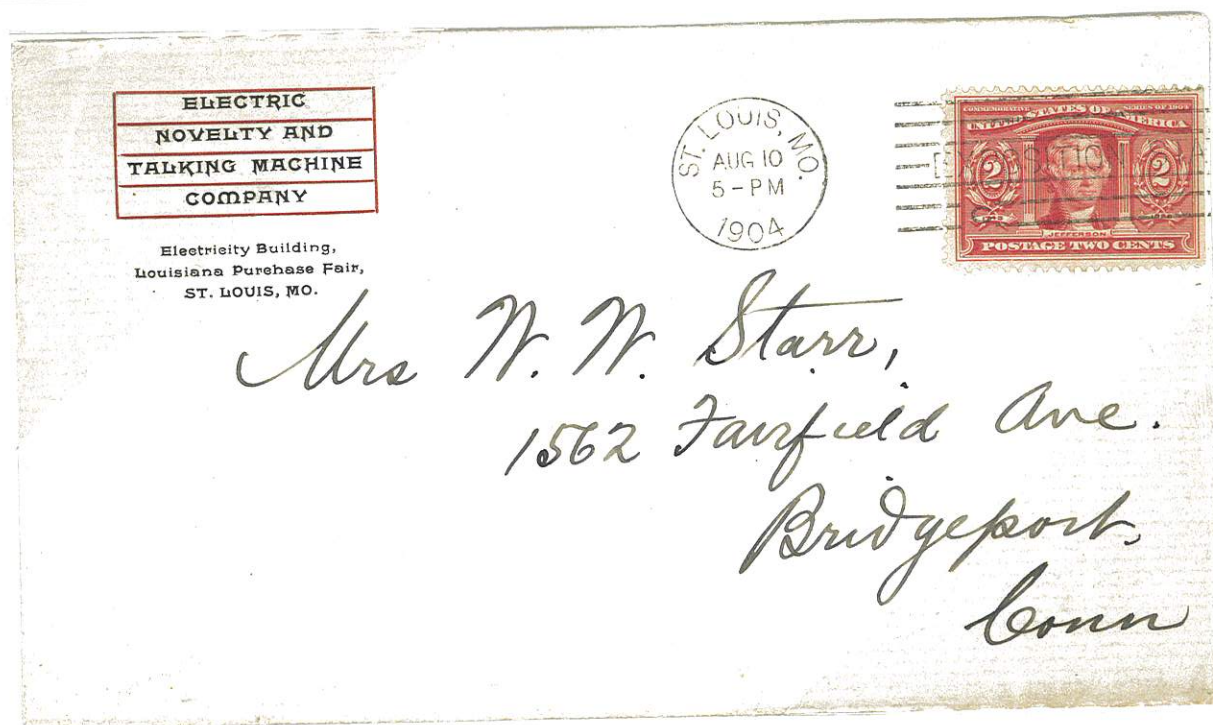 ELECTRIC
NOVELTY AND
TALKING MACHINE
COMPANY
Electricity Building,
Louisiana Purchase Fair,
ST. LOUIS, MO.
ST. LOUIS, MO.
AUG 10
5-PM
1904
COMMEMORATIVE SERIES OF 1904
UNITED STATES OF AMERICA
2 2
JEFFERSON
POSTAGE TWO CENTS
Mrs W. W. Starr,
1562 Fairfield Ave.
Bridgeport,
Conn